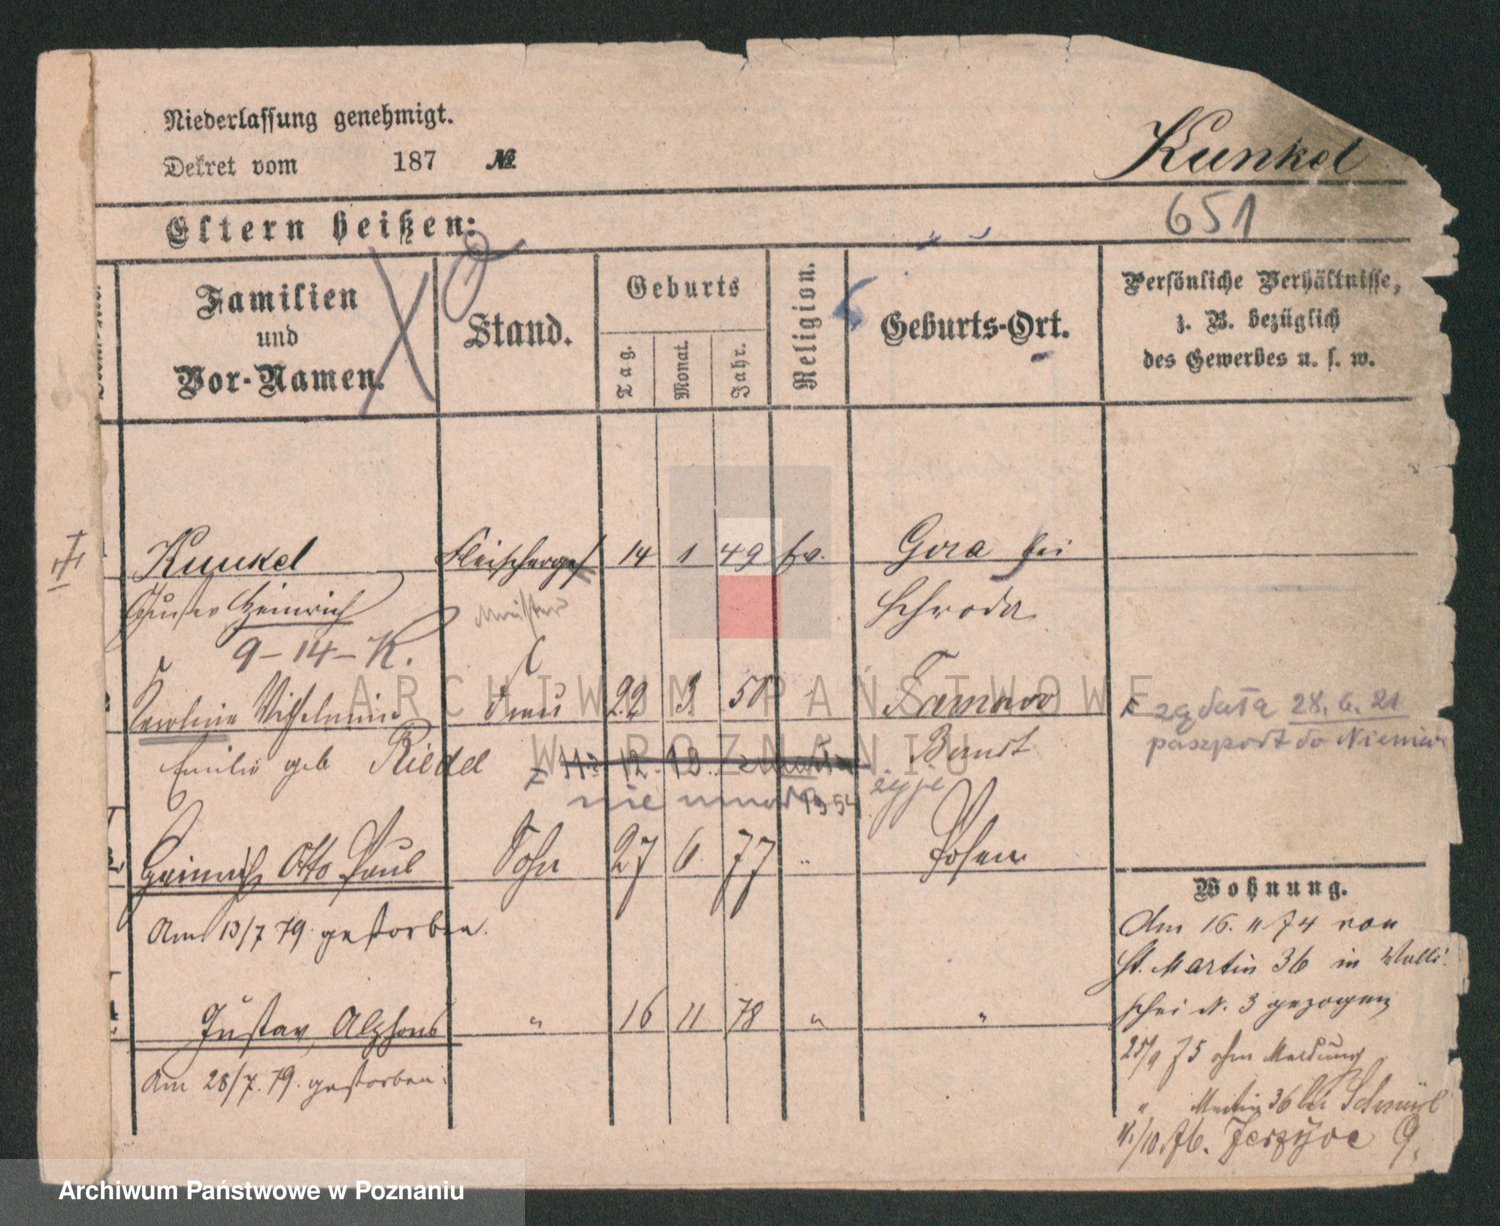 Niederlassung genehmigt.
Dekret vom 187 №
Kunkel
651
Eltern heißen:
Familien
und
Vor-Namen.
Stand.
Geburts
Tag.
Monat.
Jahr.
Religion.
Geburts-Ort.
Persönliche Verhältnisse,
z. B. bezüglich
des Gewerbes u. s. w.
Kunkel Fleischerges 14 1 49 Ev. Gora bei
Gustav Heinrich Meister Schroda
9-14-K.
Karoline Wilhelmine Frau 22 3. 50
Emilie geb Riedel
żądała 28.6.21
paszport do Niemiec
11. 12. 13.
nie 1954 żyje
Heinrich Otto Paul Sohn 27 6. 77 " Posen
Am 13/7 79. gestorben.
Gustav, Alphons " 16 11 78 " "
Am 28/7. 79. gestorben.
Wohnung.
Am 16. 11 74 von
St. Martin 36 in Walli-
schei N. 3 gezogen
25/9 75 ohne Meldung
" Martin 36 bei
/10. 76. Jerzyce 9.
ARCHIWUM PAŃSTWOWE
W POZNANIU
Archiwum Państwowe w Poznaniu